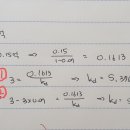 0.15 ⇒ 0.15/(1-0.09) = 0.1613
① 3 = 0.1613/kd ⇒ kd = 5.396
② 3 - 3×0.09 = 0.1613/kd ⇒ kd = 5